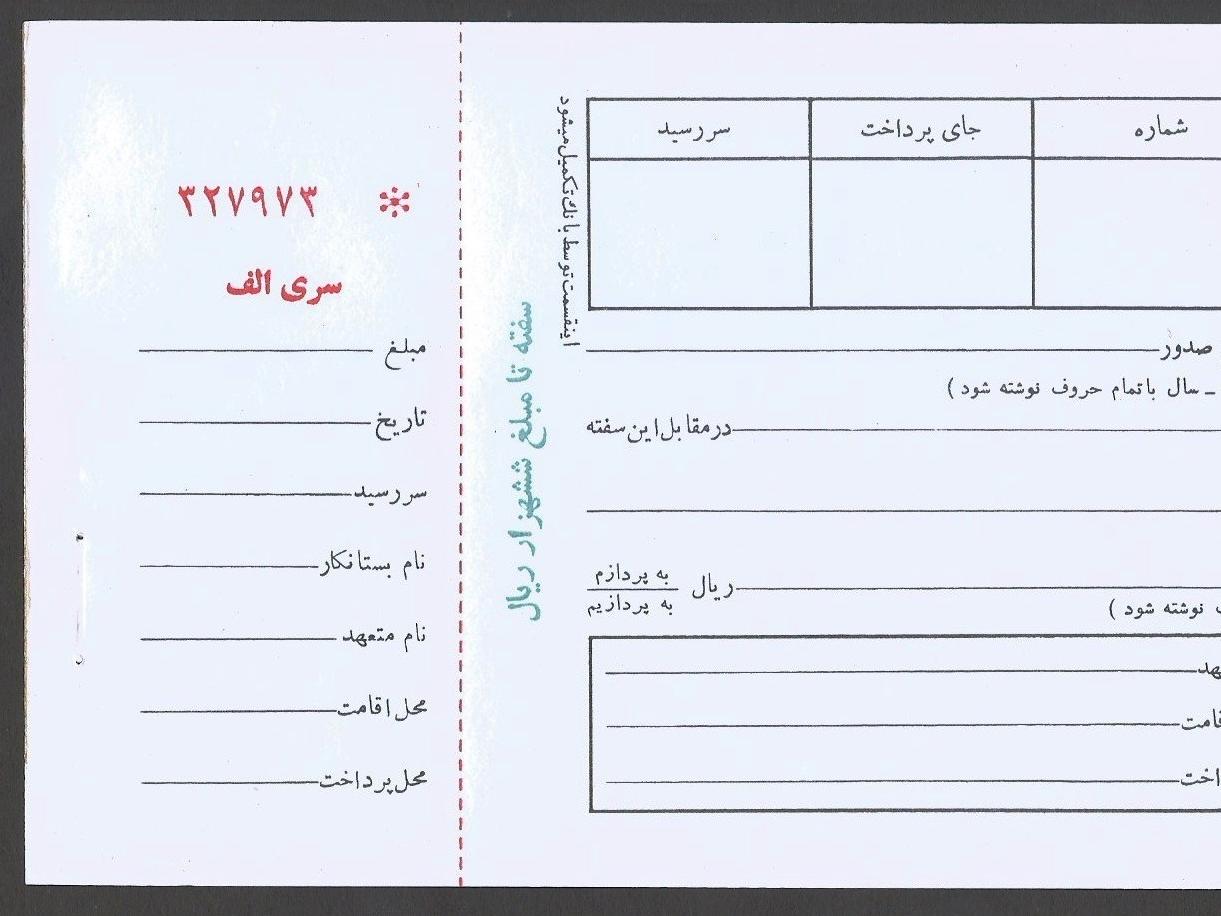 شماره
جای پرداخت
سررسید
اینقسمت توسط بانك تکمیل میشود
صدور
ـ سال باتمام حروف نوشته شود )
درمقابل این سفته
ریال
به پردازم
به پردازیم
نوشته شود )
سفته تا مبلغ ششهزار ریال
۳۲۷۹۷۳
سری الف
مبلغ
تاریخ
سررسید
نام بستانکار
نام متعهد
محل اقامت
محل پرداخت